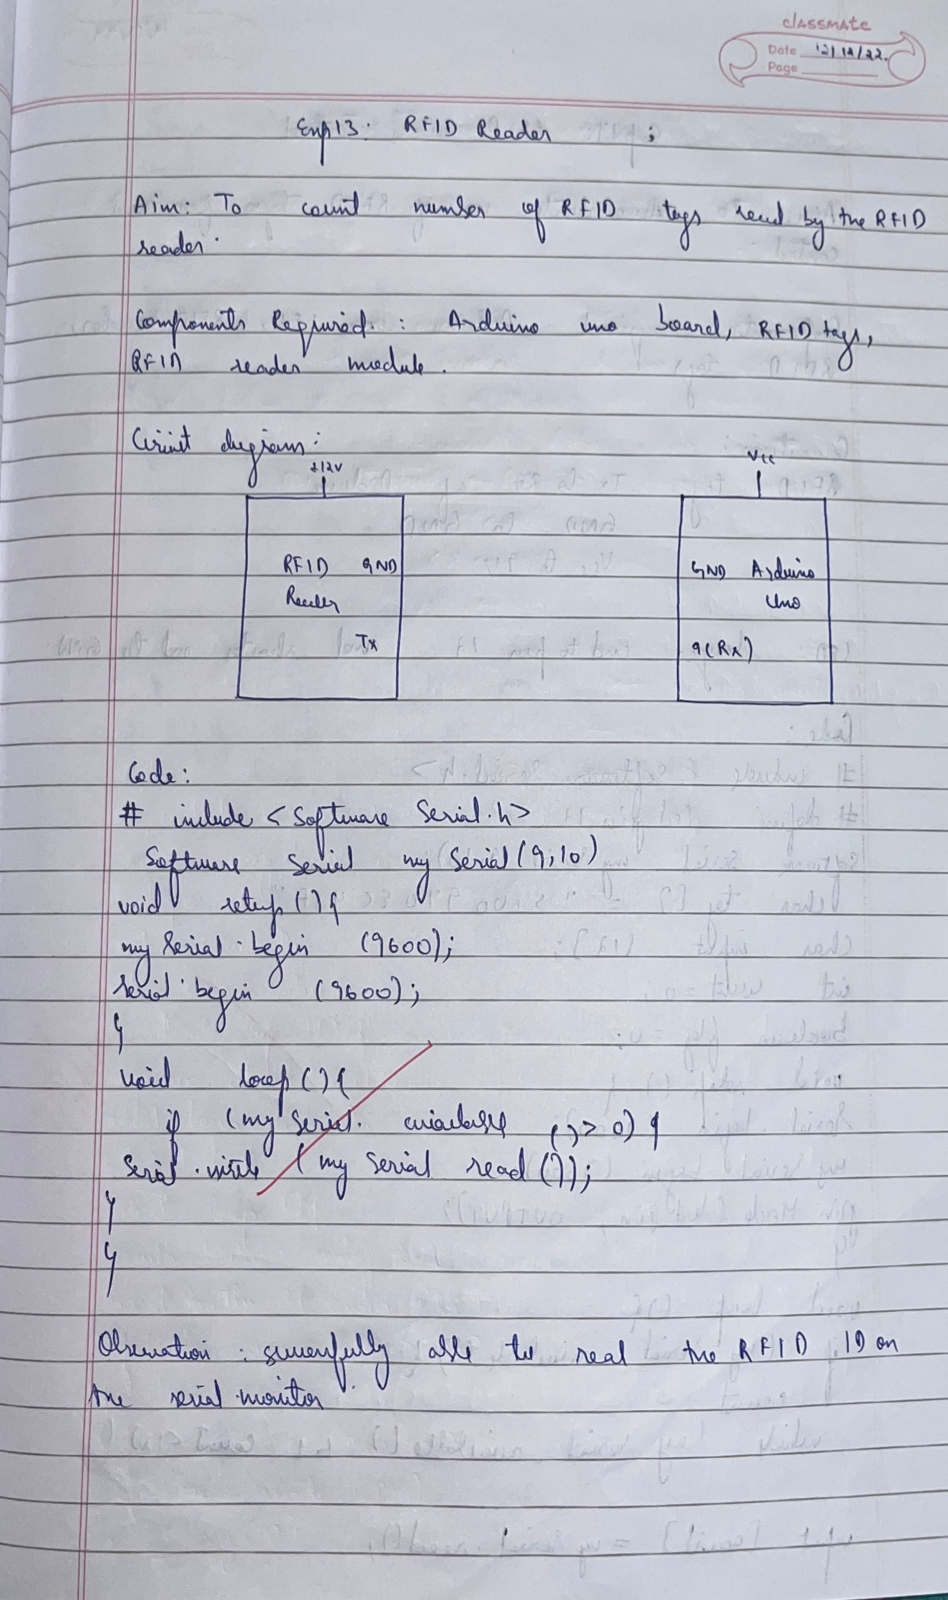 classmate
Date 12/12/22.
Page
Exp 13: RFID Reader ;
Aim: To count number of RFID tags read by the RFID
reader.
Components Required. : Arduino uno board, RFID tags,
RFID reader module.
Circuit diagram:
+12V
Vcc
RFID GND
Reader
Tx
GND Arduino
Uno
9(Rx)
Code:
# include < Software Serial.h>
Software Serial my Serial (9,10)
void setup () {
my Serial. begin (9600);
Serial. begin (9600);
}
void loop () {
if (my Serial. available () > 0) {
Serial. write (my Serial read ());
}
}
Observation : successfully able to read the RFID ID on
the serial monitor.